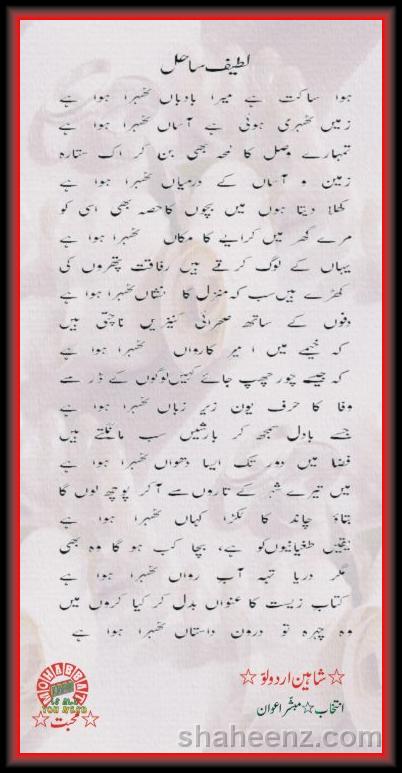 لطیف ساحل
ہوا ساکت ہے میرا بادباں ٹھہرا ہوا ہے
زمیں ٹھہری ہوئی ہے آسماں ٹھہرا ہوا ہے
تمہارے وصل کا لمحہ بھی بن کر اک ستارہ
زمین و آسماں کے درمیاں ٹھہرا ہوا ہے
کھلا دیتا ہوں میں بچوں کا حصہ بھی اسی کو
مرے گھر میں کرایے کا مکاں ٹھہرا ہوا ہے
یہاں کے لوگ کرتے ہیں رفاقت پتھروں کی
کھڑے ہیں سب کہ منزل کا نشاں ٹھہرا ہوا ہے
دفوں کے ساتھ صحرائی کنیزیں ناچتی ہیں
کہ خیمے میں امیر کارواں ٹھہرا ہوا ہے
کہ جیسے چور چھپ جائے کہیں لوگوں کے ڈر سے
وفا کا حرف یوں زیر زباں ٹھہرا ہوا ہے
جسے بادل سمجھ کر بارشیں سب مانگتے ہیں
فضا میں دور تک ایسا دھواں ٹھہرا ہوا ہے
میں تیرے شہر کے تاروں سے آ کر پوچھ لوں گا
بتاؤ چاند کا ٹکڑا کہاں ٹھہرا ہوا ہے
یقیں طغیانیوں کو ہے، بچا کب ہو گا وہ بھی
مگر دریا تہہ آب رواں ٹھہرا ہوا ہے
کتاب زیست کا عنواں بدل کر کیا کروں میں
وہ چہرہ تو درون داستاں ٹھہرا ہوا ہے
☆شاہین اردو لو☆
انتخاب☆مبشر اعوان
MOHABBAT
IS ALL
YOU NEED
☆محبت☆
shaheenz.com